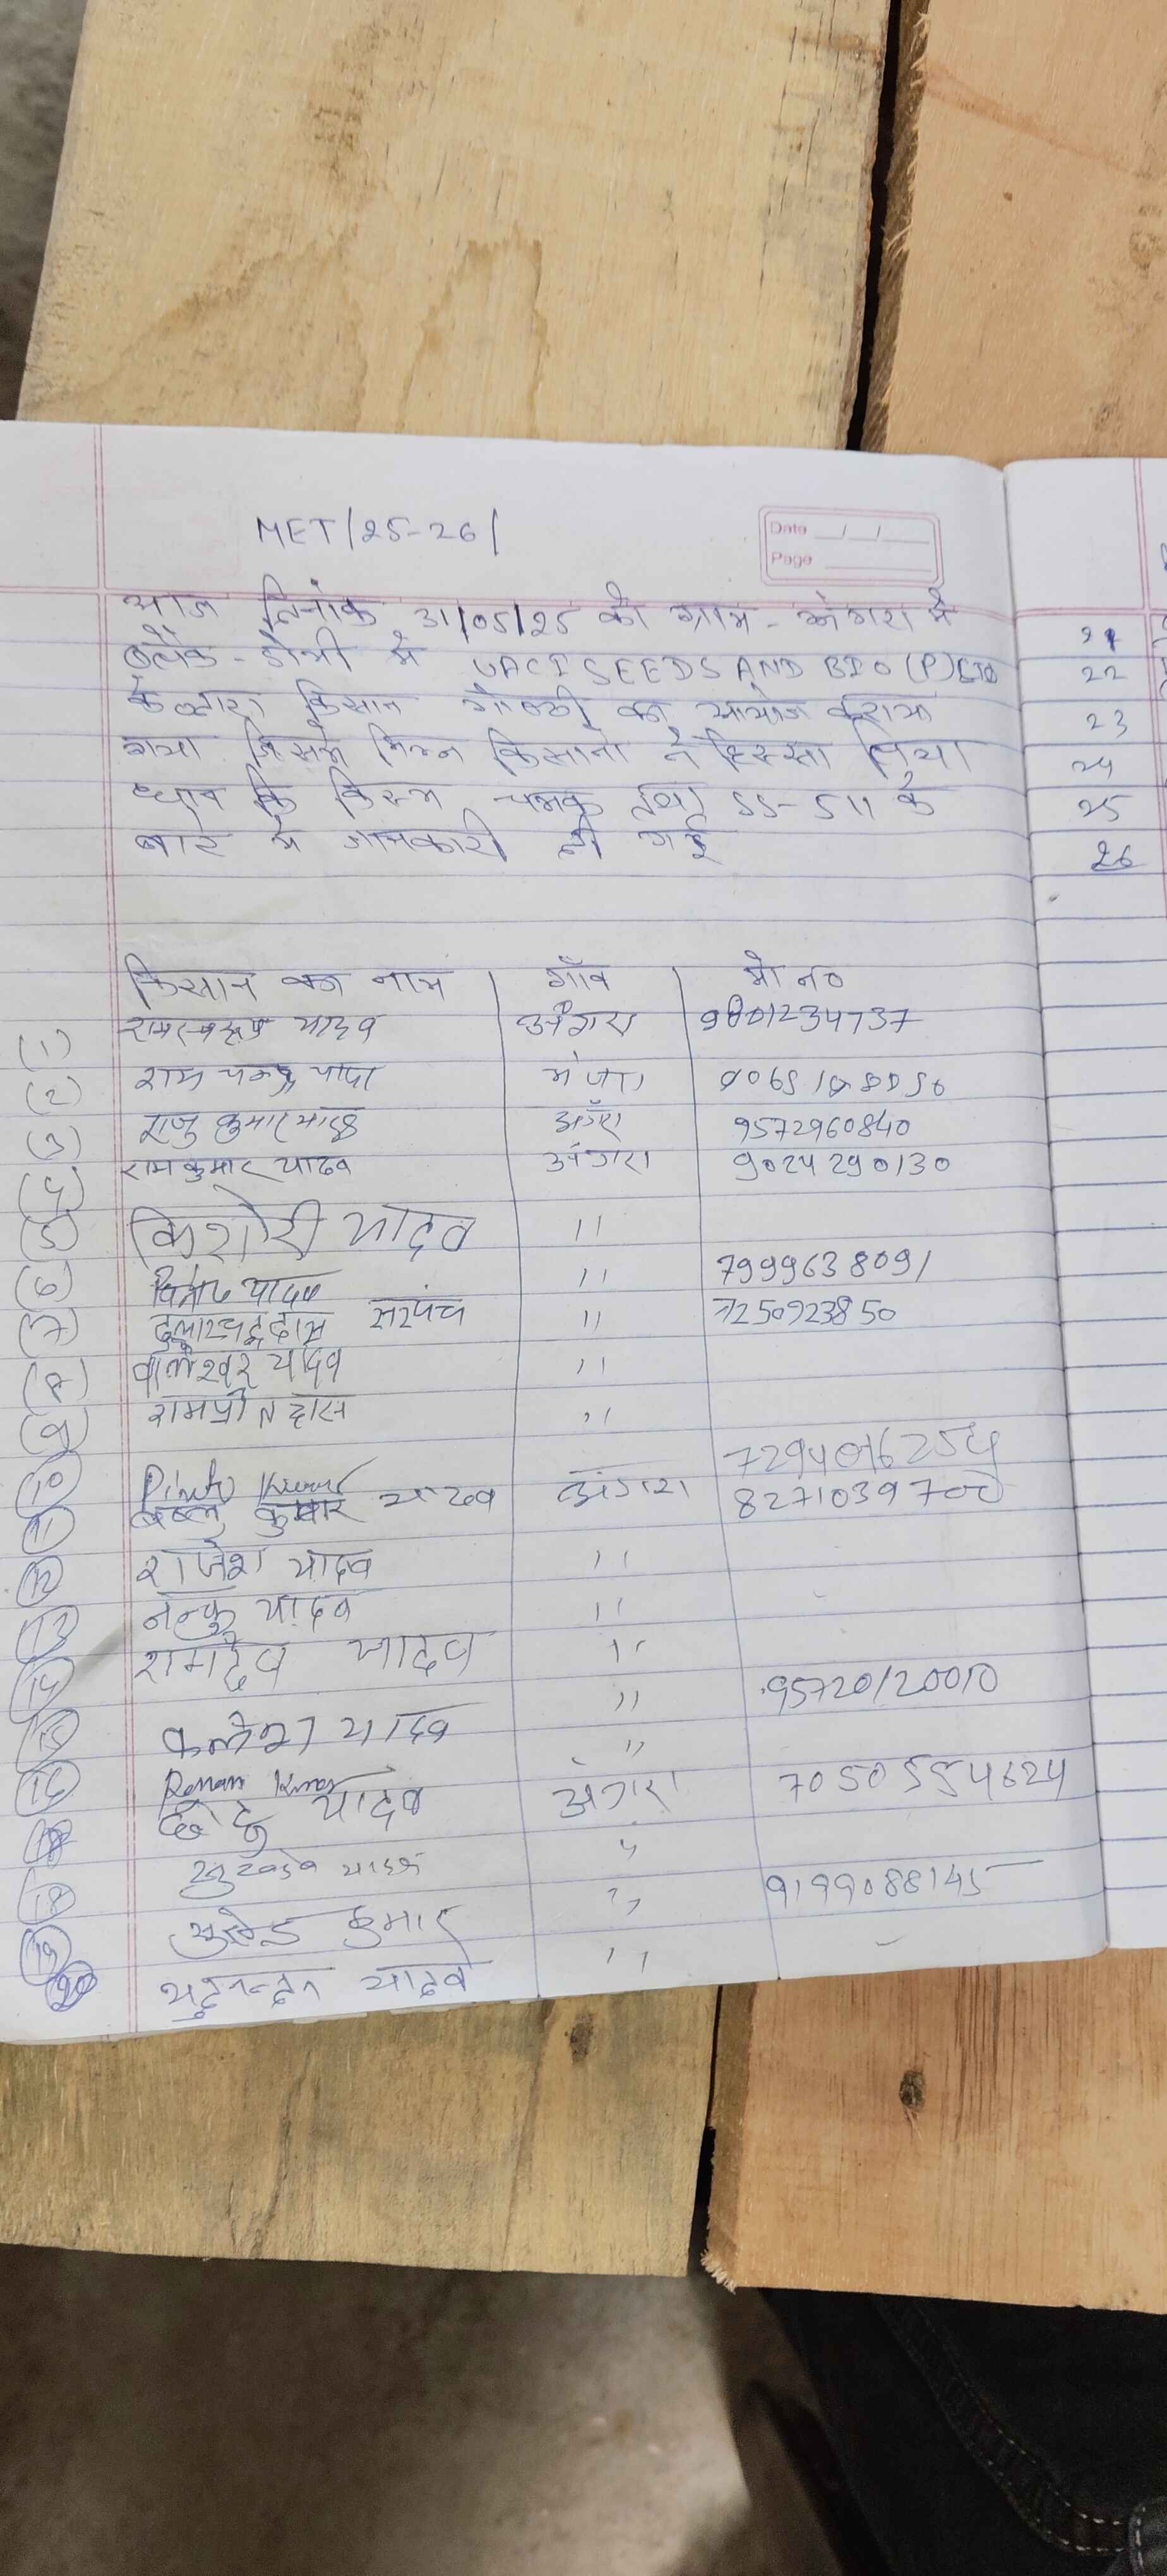 MET/25-26/
Date __/__/__
Page
आज दिनांक 31/05/25 को ग्राम - अंगरा में
ब्लॉक - डोभी में SEEDS AND BIO (P) LTD
के द्वारा किसान गोष्ठी का आयोज कराया
गया जिसमे किसानो ने हिस्सा लिया
धान कि किस्म चमक तथा SS-511 के
बारे मे जानकारी दी गई
किसान का नाम गाँव मो न०
(1) रामस्वरूप यादव अंगरा 9801234737
(2) राम चन्द्र
(3) राजु कुमार यादव 9572960840
(4) रामकुमार यादव अंगरा 9024290130
(5) किशोरी यादव 11
(6) यादव 11 7999638091
(7) सरपंच 11 7250923850
(8) बालेश्वर यादव 11
(9) रामप्रीत दास 11
(10) Kumar 7294096254
11 बब्लु कुमार यादव अंगरा 8271039700
12 राजेश यादव 11
13 नन्कु यादव 11
14 रामदेव यादव 11
15 यादव 11 95720120010
16 Raman Kumar 11
छोटु यादव अंगरा 7050554624
18 यादव "
19 कुमार " 9199088145
20 यदुनन्दन यादव 11
21
22
23
24
25
26